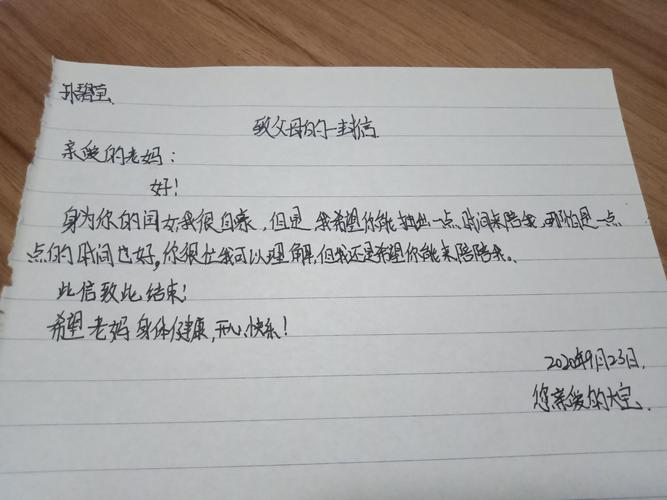 孙碧莹
致父母的一封信
亲爱的老妈:
好!
身为你的闺女,我很自豪,但是 我希望你能抽出一点时间来陪我,哪怕是一点
点的时间也好,你很忙我可以理解,但我还是希望你能来陪陪我。
此信致此结束!
希望老妈身体健康,开心快乐!
2020年9月23日.
您亲爱的大宝.